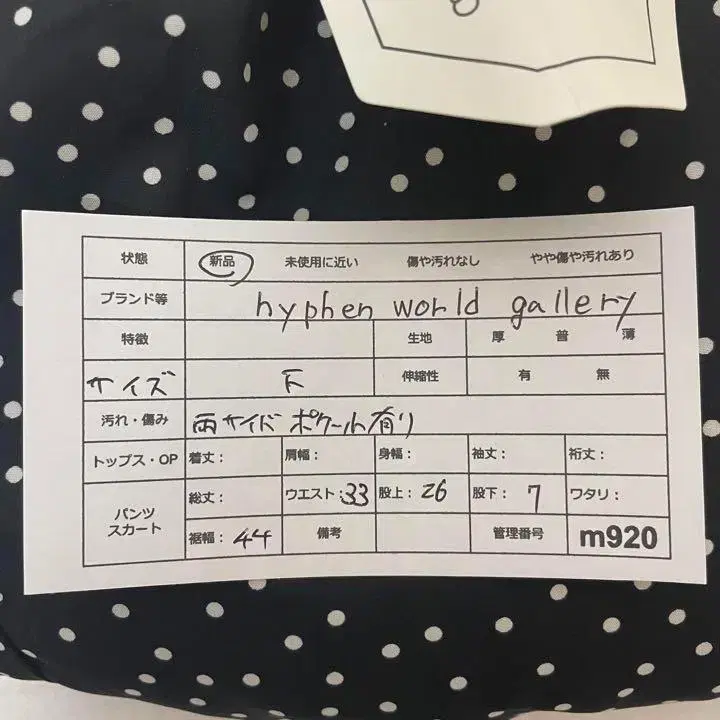 状態 新品 未使用に近い 傷や汚れなし やや傷や汚れあり
ブランド等 hyphen world gallery
特徴 生地 厚 普 薄
サイズ F 伸縮性 有 無
汚れ・傷み 両サイドポケット有り
トップス・OP 着丈: 肩幅: 身幅: 袖丈: 裄丈:
パンツ スカート 総丈: ウエスト:33 股上:26 股下:7 ワタリ:
裾幅:44 備考 管理番号 m920